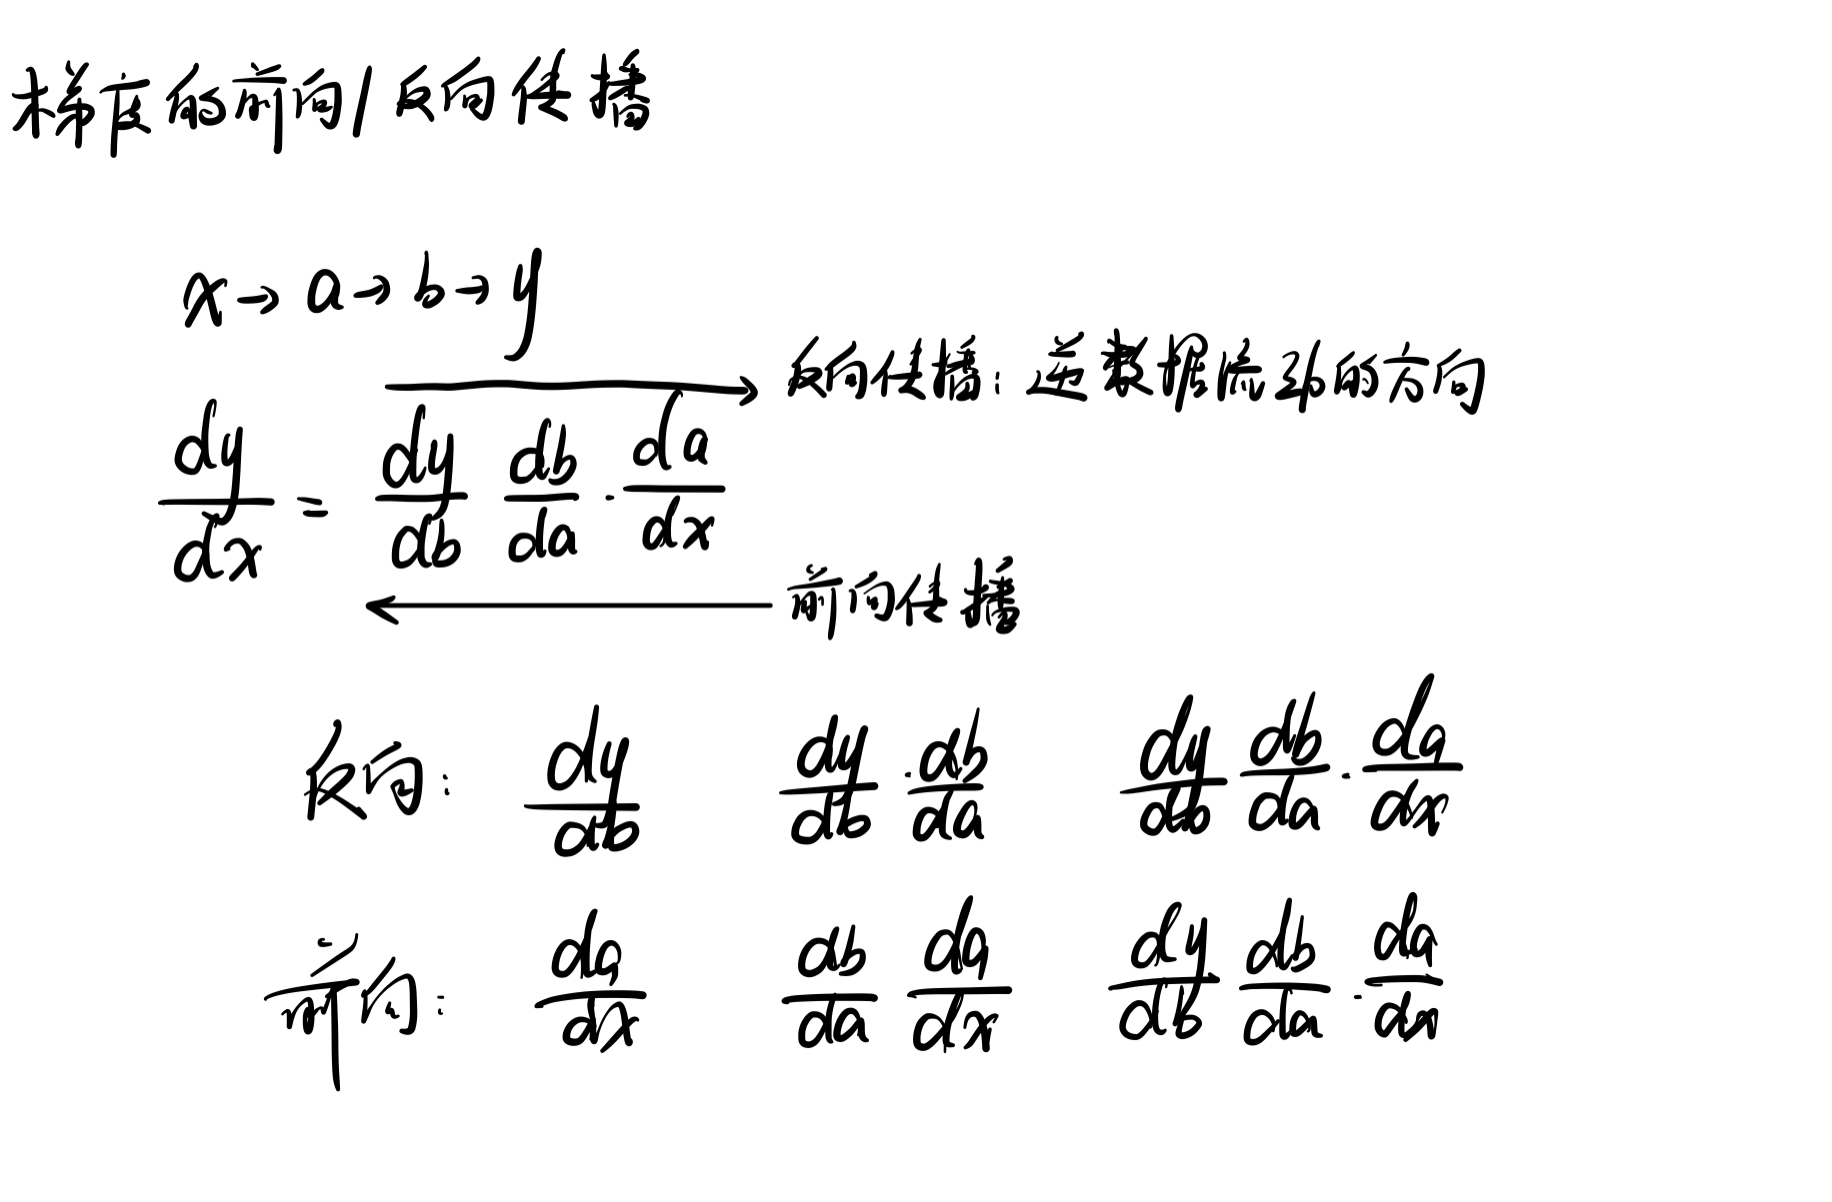 梯度的前向/反向传播
x→a→b→y
反向传播:逆数据流动的方向
dy/dx = dy/db db/da · da/dx
前向传播
反向: dy/db dy/db · db/da dy/db db/da · da/dx
前向: da/dx db/da da/dx dy/db db/da · da/dx